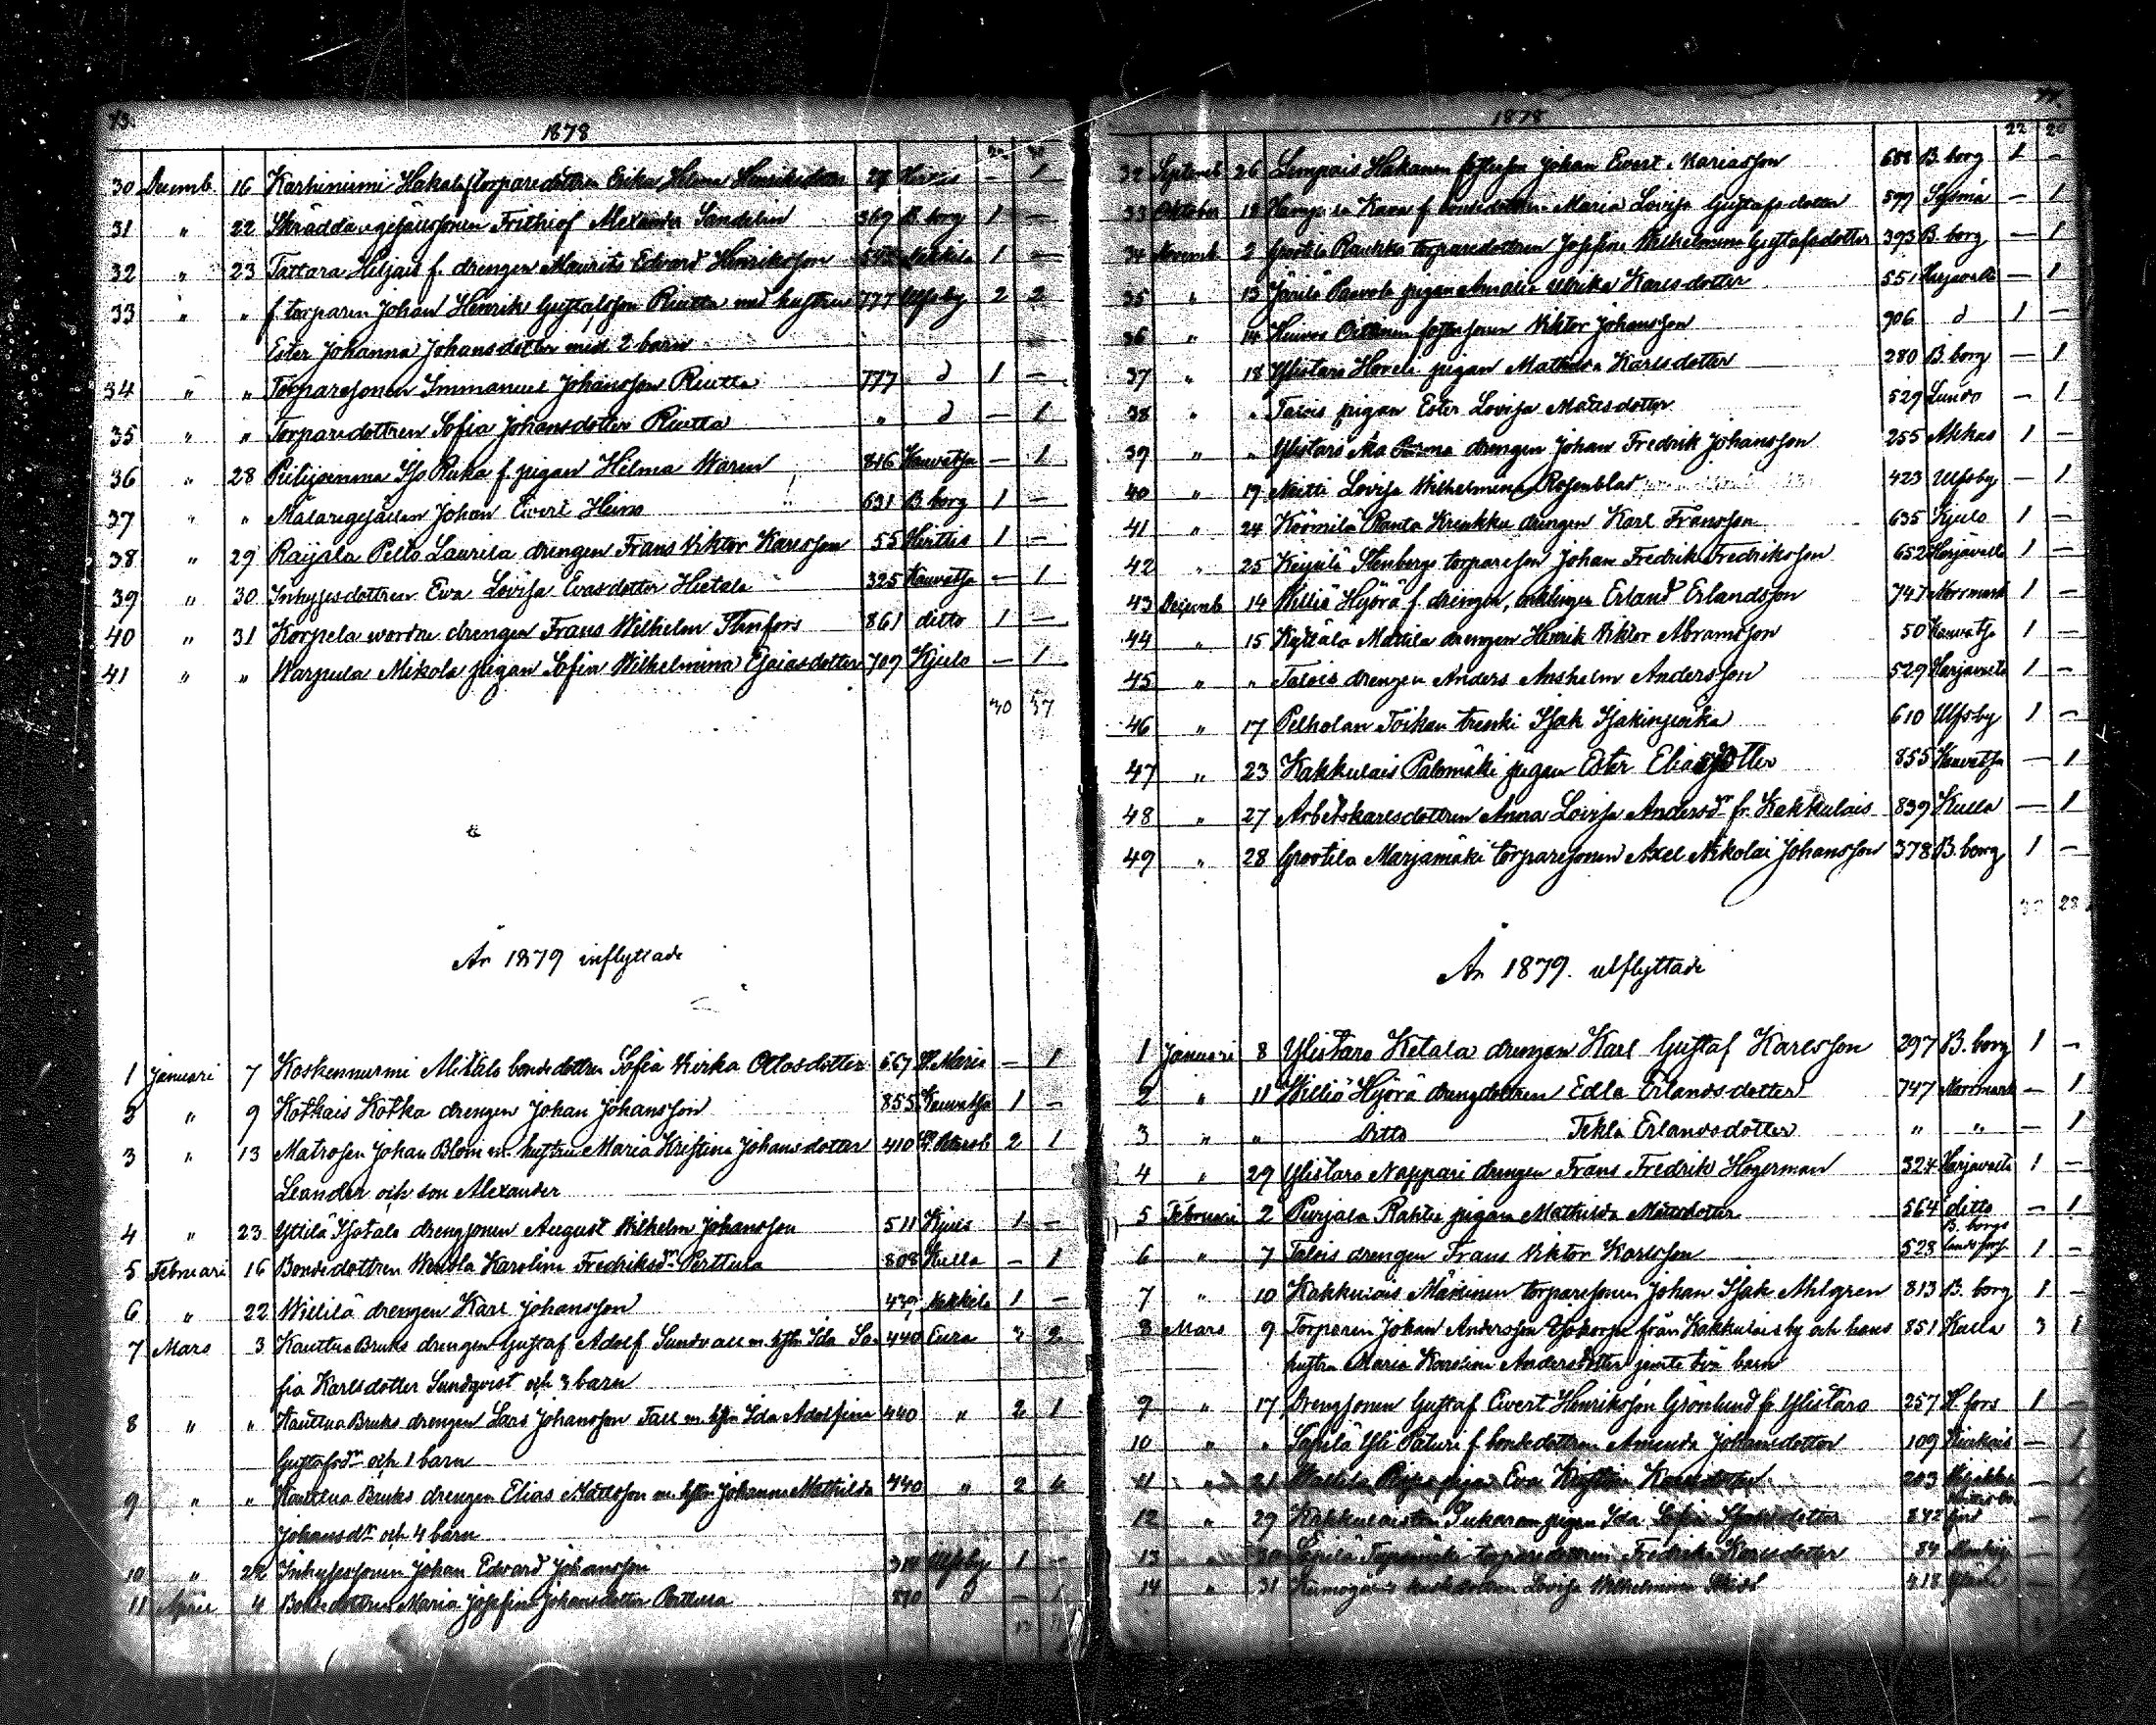 73.
1878
30 Decemb. 16 Karhiniemi Hakala f torparedottren Erika Helena Henriksdotter 1
31 " 22 Skräddaregesällsonen Frithiof Alexander Sandelin 369 B. borg 1 —
32 " 23 Tattara Heljais f. drengen Maurits Edvard Henriksson Nakkila 1 —
33 " " f. torparen Johan Henrik Gustafsson Riutta med hustrun 777 Ulfsby 2 2
Ester Johanna Johansdotter med 2 barn
34 " " Torparesonen Immanuel Johansson Riutta 777 d 1 —
35 " " Torparedottren Sofia Johansdotter Riutta " d — 1
36 " 28 Piilijoenmaa Iso Ruka f. pigan Helma Waren 816 Kauvatsa — 1
37 " " Målaregesällen Johan Evert Heino 631 B. borg 1 —
38 " 29 Raijala Pelto Laurila drengen Frans Viktor Karlsson 55 Hvittis 1 —
39 " 30 Inhysesdottren Eva Lovisa Evasdotter Hietala 325 Kauvatsa — 1
40 " 31 Korpela wordne drengen Frans Wilhelm Stenfors 861 ditto 1 —
41 " " Warpula Mikola pigan Sofia Wilhelmina Esaiasdotter 709 Kjulo — 1
30 37
År 1879 inflyttade
1 Januari 7 Koskennurmi Mikkola bondedottren Sofia Virka Ottosdotter 667 St. Marie — 1
2 " 9 Kotkais Kotka drengen Johan Johansson 855 Kauvatsa 1 —
3 " 13 Matrosen Johan Blom m. hustru Maria Kristina Johansdotter 410 St. Petersb 2 1
Leander och son Alexander
4 " 23 Yttilä Isotalo drengsonen August Wilhelm Johansson 511 Kjulo 1 —
5 Februari 16 Bondedottren Wendla Karolina Fredriksdr Perttula 808 Kulla — 1
6 " 22 Willilä drengen Karl Johansson 439 Nakkila 1 —
7 Mars 3 Kauttua Bruks drengen Gustaf Adolf Sundvall m. hstr Ida So- 440 Eura 2
fia Karlsdotter Sundqvist och 3 barn
8 " " Kauttua Bruks drengen Lars Johansson Tall m. hstr Ida Adolfina 440 " 2 1
Gustafsdr och 1 barn
9 " " Kauttua Bruks drengen Elias Mattsson m. hstr Johanna Mathilda 440 " 2 4
Johansdr och 4 barn
10 " 22 Inhysessonen Johan Edvard Johansson Ulfsby 1 —
11 April 4 Bondedottren Maria Josefina Johansdotter Perttula 870 d — 1
1878
32 Septemb 26 Lempais Hakanen fostersson Johan Evert Mariasson 688 B. borg 1 —
33 Oktober 18 f. bondedottren Maria Lovisa Gustafsdotter 599 Sysmä — 1
34 Novemb 2 Grootila Raukko torparedottren Josefina Wilhelmina Gustafsdotter 393 B. borg — 1
35 " 13 Järilä Paavola pigan Amalia Ulrika Karlsdotter 551 Harjavalta — 1
36 " 14 fostersonen Viktor Johansson 906 d 1 —
37 " 18 Ylistaro Hoveli pigan Mathilda Karlsdotter 280 B. borg — 1
38 " " Talois pigan Ester Lovisa Mattsdotter 529 Lundo — 1
39 " " Ylistaro drengen Johan Fredrik Johansson 255 Akkas 1 —
40 " 19 Lovisa Wilhelmina Rosenblad 423 Ulfsby — 1
41 " 24 Köömilä Ranta Kreukku drengen Karl Fransson 635 Kjulo 1 —
42 " 25 Keijulä Stenbergs torpareson Johan Fredrik Fredriksson 652 Harjavalta 1 —
43 Decemb 14 Williö Hyörä f. drengen, enklingen Erland Erlandsson 747 Norrmark 1 —
44 " 15 Kyttälä Mattila drengen Henrik Viktor Abramsson 50 Kauvatsa 1 —
45 " " Talois drengen Anders Anshelm Andersson 529 Harjavalta 1 —
46 " 17 Pelholan Toikan trenki Isak Isakinpoika 610 Ulfsby 1 —
47 " 23 Kakkulais Palomäki pigan Ester Eliasdotter 855 Kauvatsa — 1
48 " 27 Arbetskarlsdottren Anna Lovisa Andersdr fr. Kakkulais 839 Kulla — 1
49 " 28 Grootila Marjamäki torparesonen Axel Nikolai Johansson 378 B. borg 1 —
28
År 1879. utflyttade
1 Januari 8 Ylistaro Ketala drengen Karl Gustaf Karlsson 297 B. borg 1 —
2 " 11 Williö Hyörä drengdottren Edla Erlandsdotter 747 Norrmark — 1
3 " " Ditto Tekla Erlandsdotter " " — 1
4 " 29 Ylistaro Nappari drengen Frans Fredrik Hagerman 324 Harjavalta 1 —
5 Februari 2 Purjala Rahtu pigan Mathilda Mattsdotter 564 ditto — 1
6 " 7 Talois drengen Frans Viktor Karlsson 528 B. borgs landsförs. 1 —
7 " 10 Kakkulais Mäkinen torparesonen Johan Isak Ahlgren 813 B. borg 1 —
8 Mars 9 Torparen Johan Andersson Isokorpi från Kakkulais by och hans 851 Kulla 3 1
hustru Maria Karolina Andersdotter jemte två barn
9 " 17 Drengsonen Gustaf Evert Henriksson Grönlund fr Ylistaro 257 H. fors 1 —
10 " " Sapilä Yli Paturi f. bondedottren Amanda Johansdotter 109 — 1
11 " 21 pigan Eva Kristina 203 — 1
12 " 29 Kakkulaisten pigan Ida Sofia Isaksdotter 842 — 1
13 " 30 Sapilä torparedottren Fredrika Karlsdotter 84 — 1
14 " 31 Lovisa Wilhelmina 418 — 1